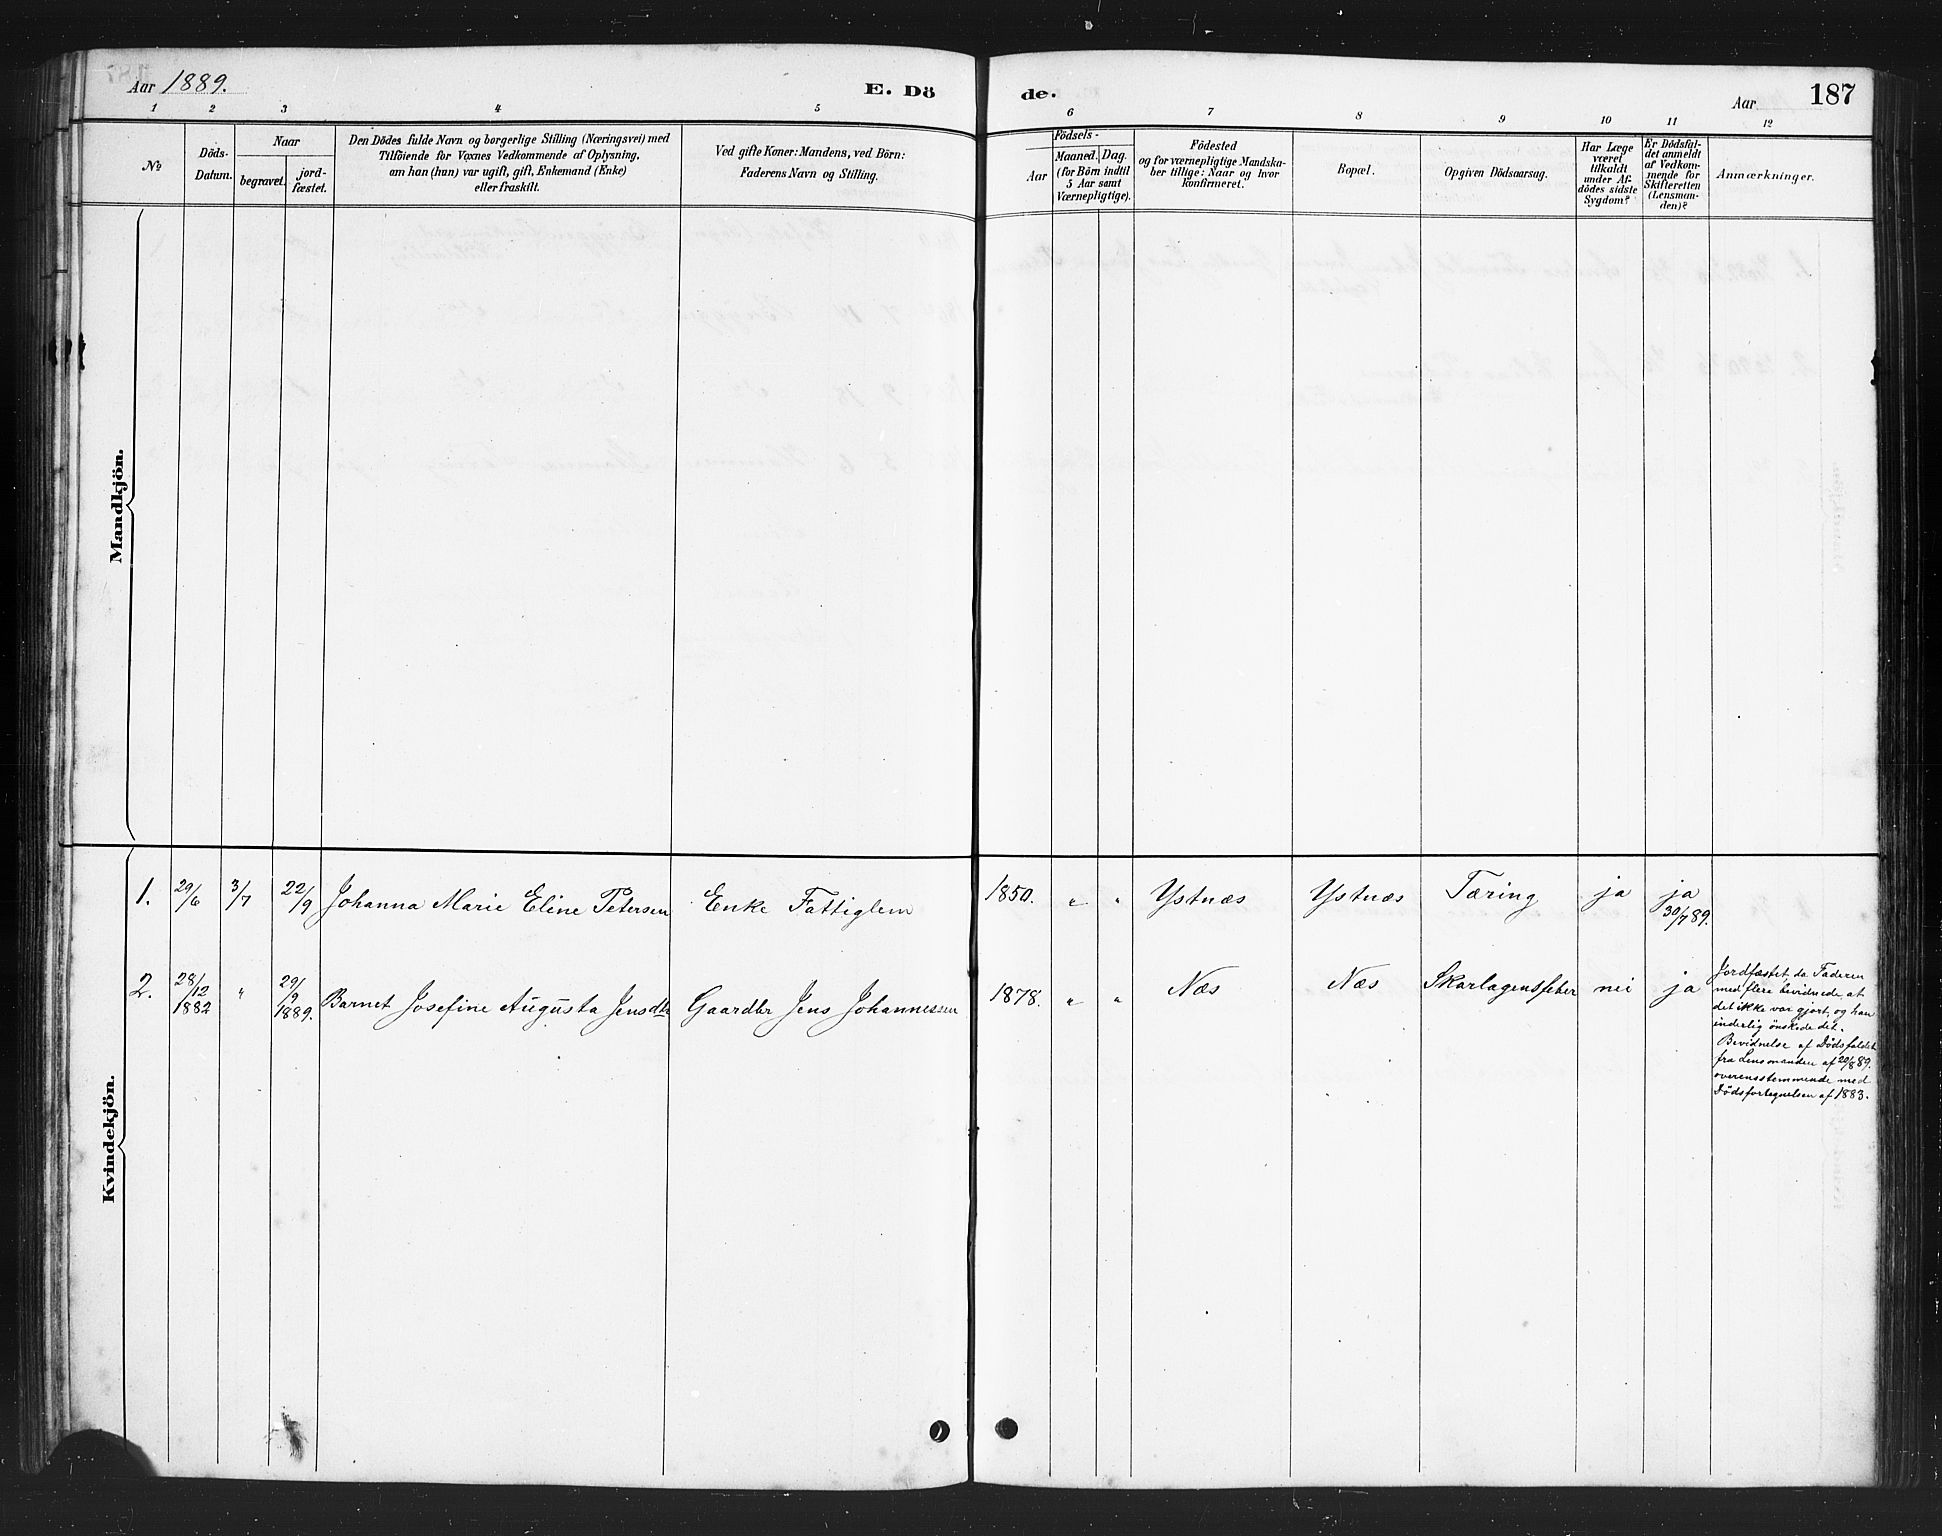 Aar 1889.
E. Dö
de.
Aar
187
1 2 3 4 5 6 7 8 9 10 11 12
No
Döds-
Datum.
Naar
begravet.
jord-
fæstet.
Den Dödes fulde Navn og borgerlige Stilling (Næringsvei) med
Tilföiende for Voxnes Vedkommende af Oplysning,
om han (hun) var ugift, gift, Enkemand (Enke)
eller fraskilt.
Ved gifte Koner: Mandens, ved Börn:
Faderens Navn og Stilling.
Födsels-
Aar
Maaned. Dag.
(for Börn indtil
5 Aar samt
Værnepligtige).
Födested
og for værnepligtige Mandska-
ber tillige: Naar og hvor
konfirmeret.
Bopæl.
Opgiven Dödsaarsag.
Har Læge
været
tilkaldt
under Af-
dödes sidste
Sygdom?
Er Dödsfal-
det anmeldt
af Vedkom-
mende for
Skifteretten
(Lensman-
den)?
Anmærkninger.
Mandkjön.
Kvindekjön.
1. 29/6 3/7 22/9 Johanna Marie Eline Petersen Enke Fattiglem 1850. " " Ystnæs Ystnæs Tæring ja ja
30/7 89.
2. 28/12
1882 " 29/9
1889. Barnet Josefine Augusta Jensdtr Gaardbr Jens Johannessen 1878. " " Næs Næs Skarlagensfeber nei ja
Jordfæstet, da Faderen
med flere bevidnede, at
det ikke var gjort, og han
inderlig ønskede det.
Bevidnelse af Dødsfaldet
fra Lensmanden af 20/8 89.
overensstemmende med
Dødsfortegnelsen af 1883.